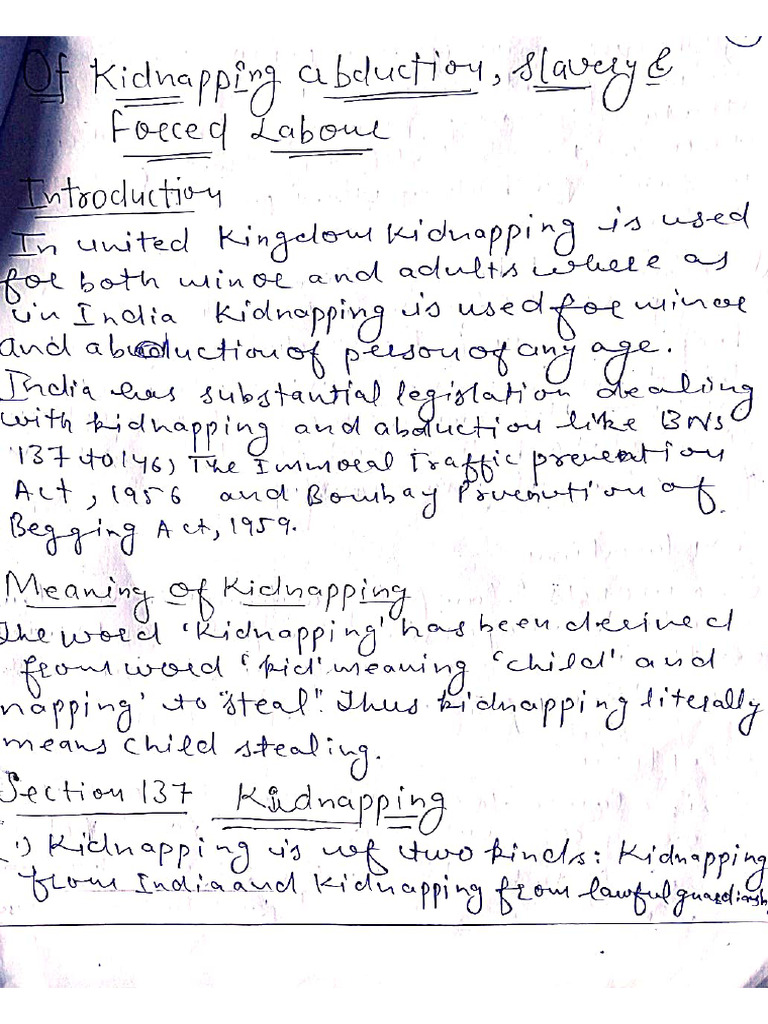 Of Kidnapping abduction, slavery &
Forced Labour
Introduction
In united Kingdom kidnapping is used
for both minor and adults where as
in India kidnapping is used for minor
and abduction of person of any age.
India has substantial legislation dealing
with kidnapping and abduction like BNS
137 to 146, The Immoral Traffic prevention
Act, 1956 and Bombay Prevention of
Begging Act, 1959.
Meaning of Kidnapping
The word 'Kidnapping' has been derived
from word 'kid' meaning 'child' and
napping' to "steal". Thus kidnapping literally
means child stealing.
Section 137 Kidnapping
1) Kidnapping is of two kinds: Kidnapping
from India and kidnapping from lawful guardiansh